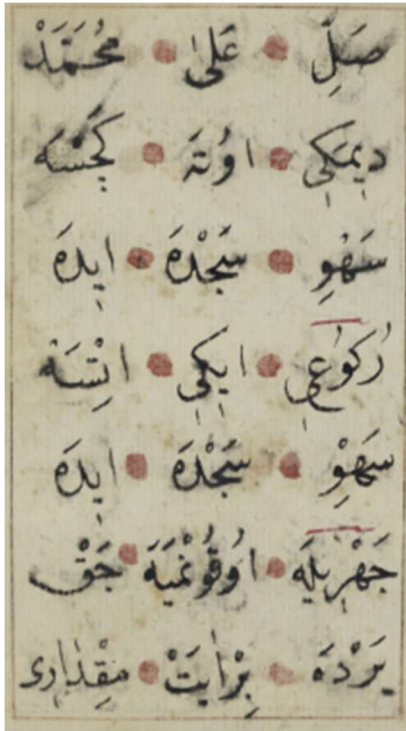 صَلِّ عَلٰى مُحَمَّدْ
دِيمَكِى اوُتَه كَچْسَه
سَهْوِ سَجْدَه ايدَه
رُكوُعِى ايكِى اتْسَه
سَهْوِ سَجْدَه ايدَه
جَهْرِيلَه اوُقوُنْمَيَه جَقْ
يَرْدَه بِرْ اٰيَتْ مِقْدٰارى